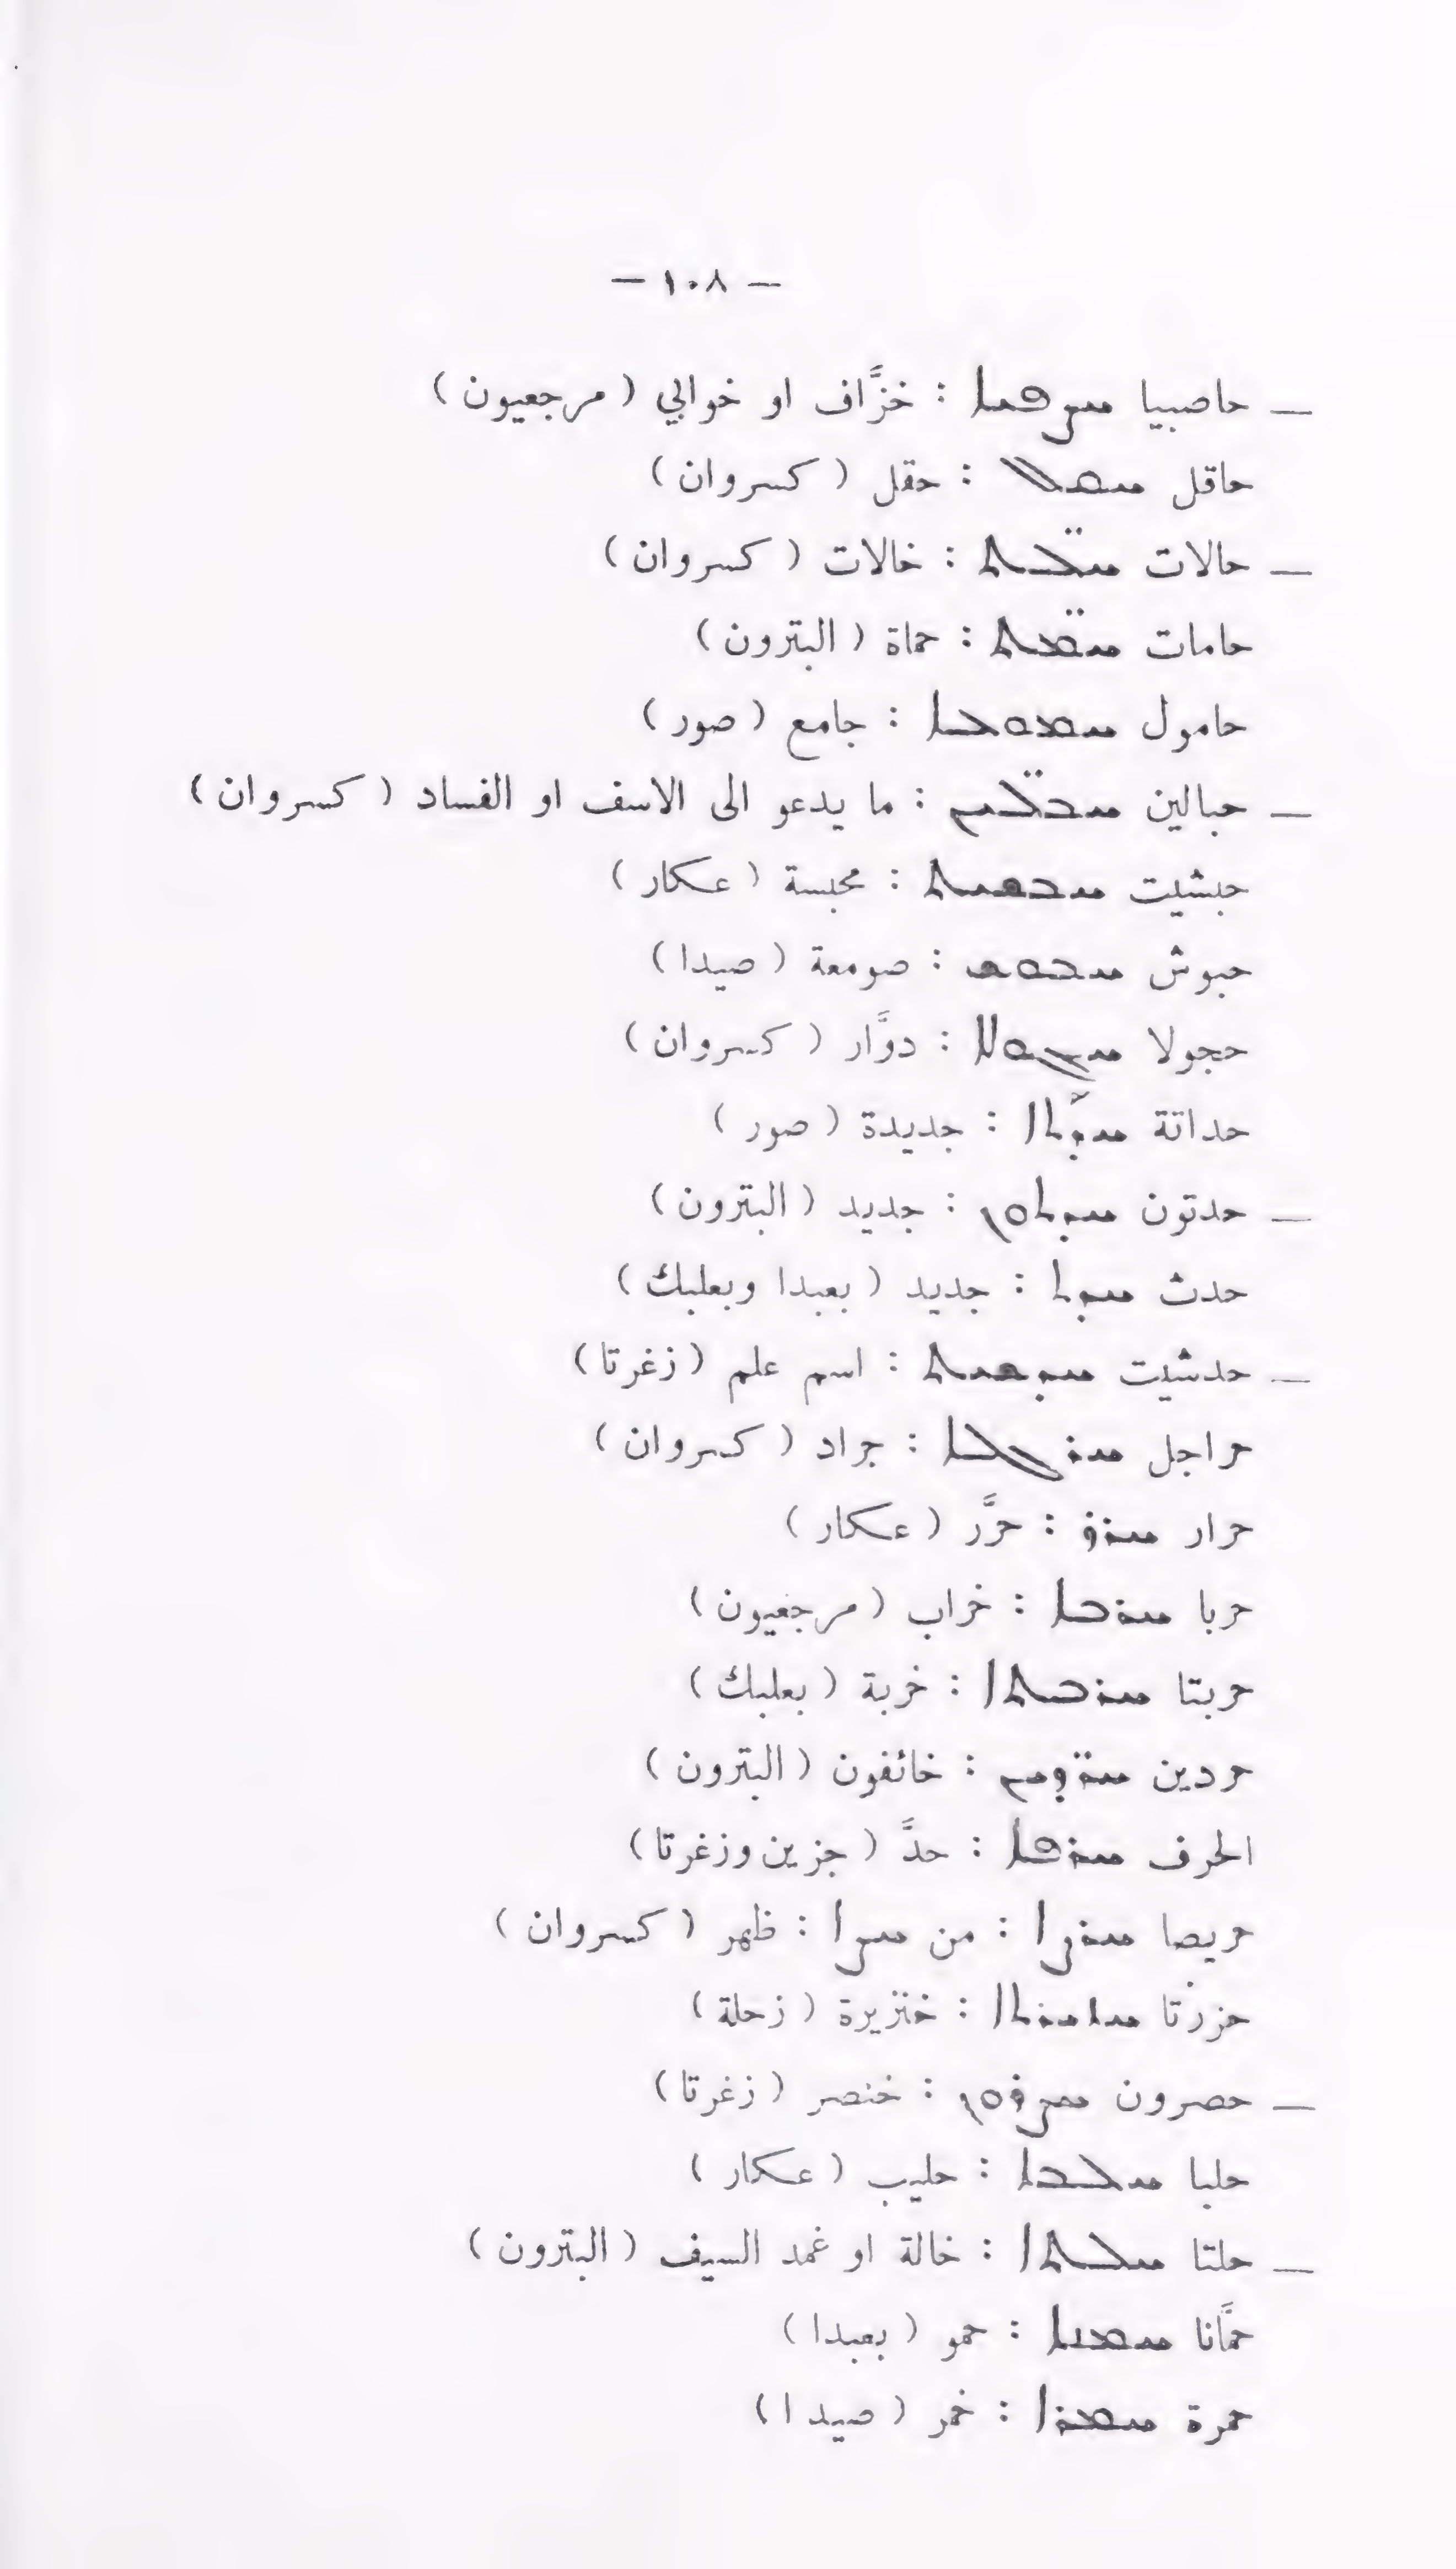 — ١٠٨ —
— حاصبيا ܚܨܦܝܐ : خزَّاف او خوابي ( مرجعيون )
حاقل ܚܩܠ : حقل ( كسروان )
— حالات ܚܠ̈ܬ : خالات ( كسروان )
حامات ܚܡ̈ܬ : حماة ( البترون )
حامول ܚܡܘܠܐ : جامع ( صور )
— حبالين ܚܒ̈ܠܝܢ : ما يدعو الى الاسف او الفساد ( كسروان )
حبشيت ܚܒܫܝܬ : محبسة ( عكار )
حبوش ܚܒܘܫ : صومعة ( صيدا )
حجولا ܚܓܘܠܐ : دوَّار ( كسروان )
حداثة ܚܕܬܐ : جديدة ( صور )
— حدتون ܚܕܬܘܢ : جديد ( البترون )
حدث ܚܕܬ : جديد ( بعبدا وبعلبك )
— حدشيت ܚܕܫܝܬ : اسم علم ( زغرتا )
حراجل ܚܪܓܠܐ : جراد ( كسروان )
حرار ܚܪܪ : حرَّر ( عكار )
حربا ܚܪܒܐ : خراب ( مرجعيون )
حربتا ܚܪܒܬܐ : خربة ( بعلبك )
حردين ܚܪ̈ܕܝܢ : خائفون ( البترون )
الحرف ܚܪܦܐ : حدَّ ( جزين وزغرتا )
حريصا ܚܪܨܐ : من ܚܨܐ : ظهر ( كسروان )
حزرتا ܚܙܝܪܬܐ : خنزيرة ( زحلة )
— حصرون ܚܨܪܘܢ : خنصر ( زغرتا )
حلبا ܚܠܒܐ : حليب ( عكار )
— حلتا ܚܠܬܐ : خالة او غمد السيف ( البترون )
حمَّانا ܚܡܢܐ : حمو ( بعبدا )
حمرة ܚܡܪܐ : خمر ( صيدا )